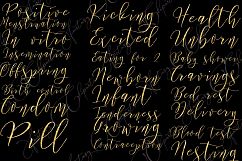 Positive
Menstruation
In vitro
Insemination
Offspring
Birth control
Condom
Pill
Kicking
Excited
Eating for 2
Newborn
Infant
Tenderness
Growing
Contraception
Health
Unborn
Baby shower
Cravings
Bed rest
Delivery
Blood test
Nesting